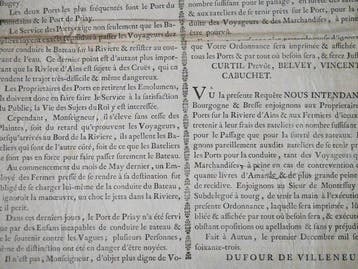 Bugey.
Les deux Ports les plus considérables sont le Port de
& le Port de Priay.
Le Service des Ports exige non seulement que les Ba-
passer les Voyageurs dez
pour conduire le Bateau sur la Riviere & resister au cou-
rant de l'eau. Ce dernier point est d'autant plus impor-
tant que la Riviere d'Ains est sujette à des Cruës, qui en
rendent le trajet très-difficile & même dangereux.
Les Proprietaires des Ports en retirent les Emolumens,
ils doivent donc en faire faire le Service à la satisfaction
du Public, la Vie des Sujets du Roi y est interessée.
Cependant, Monseigneur, il s'éleve sans cesse des
Plaintes, soit du retard qu'éprouvent les Voyageurs,
lorsqu'arrivés au Bord de la Riviere, ils apellent les Ba-
teliers qui sont de l'autre côté, soit de ce que les Bateliers
ne sont pas en force pour faire passer seurement le Ba-
teau.
Au commencement du mois de May dernier, un Em-
ployé des Fermes pressé de se rendre à sa destination fut
obligé de se charger lui-même de la conduite du Bateau,
ignorit la manœuvre, un choc le jetta dans la Riviere,
il perit.
Dans ces derniers jours, le Port de Priay n'a été servi
que par des Enfans incapables de conduire le bateau &
de le soutenir contre les Vagues; plusieurs Personnes,
même de distinction ont été en danger d'être noyées.
Il n'est pas, Monseigneur, d'objet plus digne de Vo-
des Voyageurs & des Marchandises, à peine
que Votre Ordonnance sera imprimée & affichée
tous les Ports & par tout où besoin sera, & ferez Just
CURTIL Prevôt, BELVEY, VINCENT
CABUCHET.
VU la presente Requête NOUS INTENDAN
Bourgogne & Bresse enjoignons aux Proprietaires
Ports sur la Riviere d'Ains & aux Fermiers d'iceux
entretenir à leur frais des bateliers en nombre suffisant
pour le Passage que pour la sureté des
gnons pareillement ausdits bateliers de se tenir pr
les Ports pour la conduite, tant des Voyageurs q
Marchandises; à peine en cas de contravention
quante livres d'Amende & de plus grande peine
de recidive. Enjoignons au Sieur de Montessuy
Subdelegué à tourg, de tenir la main à l'execution
presente Ordonnance, laquelle sera imprimée, lüe
bliée & affichée par tout où besoin sera, & exécutée
nonobstant opositions ou apellations quelconques
Fait à Autun, le premier Decembre mil se
soixante-trois.
DUFOUR DE VILLENEU